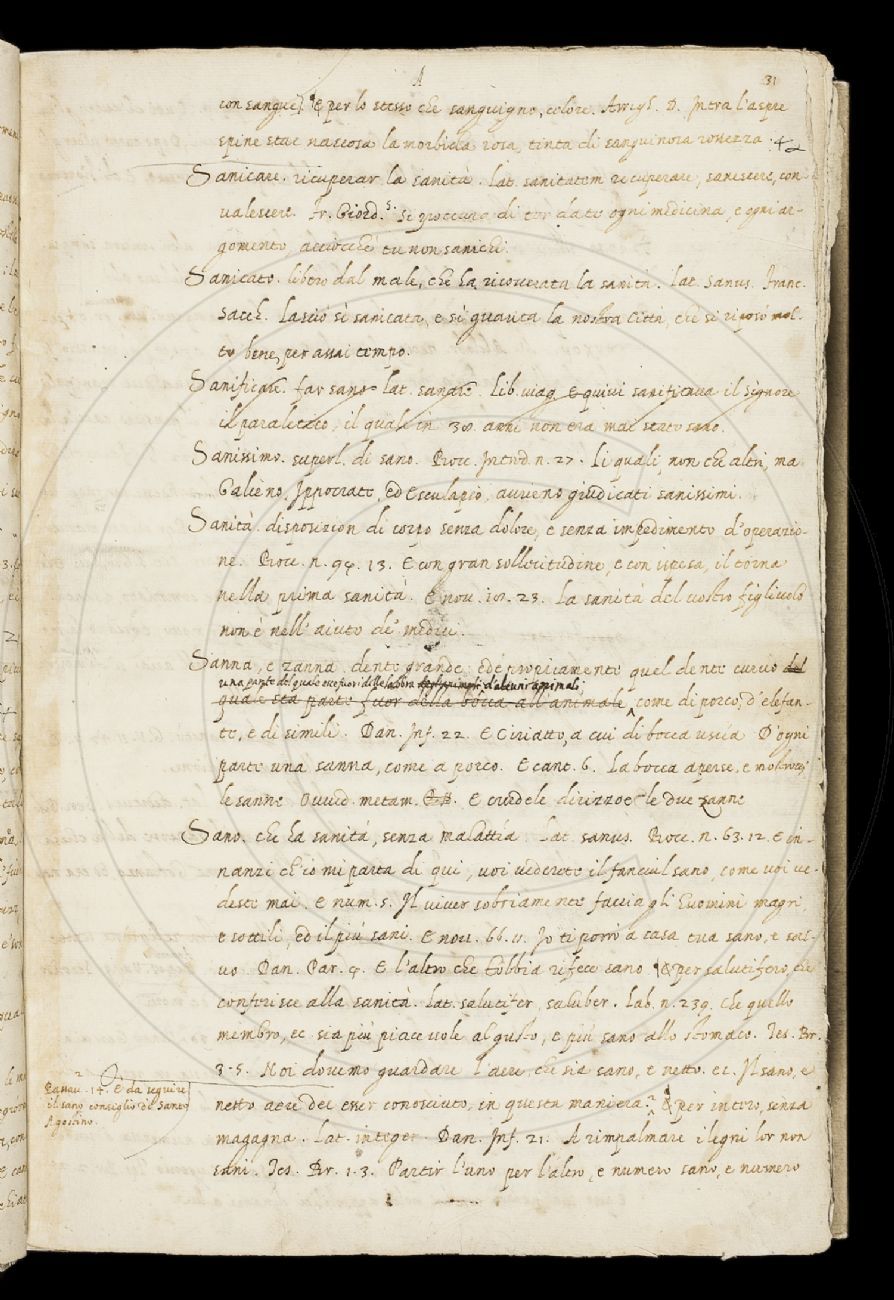 A
31
con sangue. & per lo stesso che sanguigno, colore. Arrigh. D. Intra l'aspre
spine stae nascosa la morbida rosa, tinta di sanguinosa rossezza.
Sanicare. ricuperar la sanità. lat. sanitatem recuperare, sanescere, con-
ualescere. Fr. Giord. S. Se proccura di tor date ogni medicina, e ogni ar-
gomento acciocchè tu non sanichi.
Sanicato. libero dal male, che ha ricouerata la sanità. lat. sanus. Franc.
Sacch. Lasciò sì sanicata, e sì guarita la nostra Città, che si riposò mol-
to bene, per assai tempo.
Sanificare. far sano. lat. sanare. Lib. uiag. E quiui sanificaua il Signore
il paraletico, il quale in 38. anni non era mai stato sano.
Sanissimo. superl. di sano. Bocc. Introd. n. 27. Li quali, non che altri, ma
Galieno, Ippocrate, ed Esculapio, auuieno giudicati sanissimi.
Sanità. disposizion di corpo senza dolore, e senza impedimento d'operazio-
ne. Bocc. n. 94. 13. E con gran sollecitudine, e con istesa, il torna
nella prima sanità. E nou. 18. 23. La sanità del uostro figliuolo
non è nell'aiuto de' medici.
Sanna, e zanna. dente grande: ed è propriamente quel dente curuo del
una parte del quale esce fuori delle labbra degli animali, d'alcuni animali,
quale sta parte fuor della bocca all'animale, come di porco, d'elefan-
te, e di simili. Dan. Inf. 22. E Ciriatto, a cui di bocca uscìa D'ogni
parte una sanna, come a porco. E cant. 6. La bocca aperse, e mostrocci
le sanne Ouuid. metam. E crudele dirizzoe le due zanne
Sano. che ha sanità, senza malattìa. Lat. sanus. Bocc. n. 63. 12. E in-
nanzi ch'io mi parta di qui, uoi uederete il fanciul sano, come uoi ue-
deste mai. E num. 5. Il uiuer sobriamente faccia gli huomini magri,
e sottili, ed il più sani. E nou. 66. 11. Io ti porrò a casa tua sano, e sal-
uo. Dan. Par. 9. E l'altro che Tobbia rifece sano & per salutifero, che
conferisce alla sanità. lat. salutifer, saluber. Lab. n. 239. Che quello
membro, ec. sia più piaceuole al gusto, e più sano allo stomaco. Tes. Br.
3. 5. Noi douemo guardare l'aere, che sia sano, e netto. ec. Il sano, e
netto aere dee esser conosciuto, in questa maniera. & per intero, senza
magagna. Lat. integer. Dan. Inf. 21. A rimpalmare i legni lor non
sani. Tes. Br. 1. 3. Partir l'uno per l'altro, e numero sano, e numero
Passau. 14. E da seguire
il sano consiglio di Santo
Agostino.